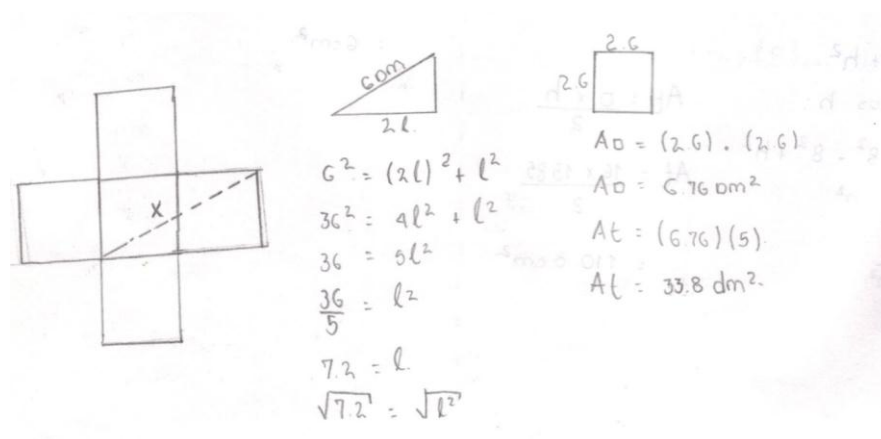 X
6 Dm
2l.
6² = (2l)² + l²
36² = 4l² + l²
36 = 5l²
36/5 = l²
7.2 = l.
√7.2 = √l²
2.6
2.6
A□ = (2.6) . (2.6)
A□ = 6.76 Dm²
At = (6.76)(5).
At = 33.8 dm².